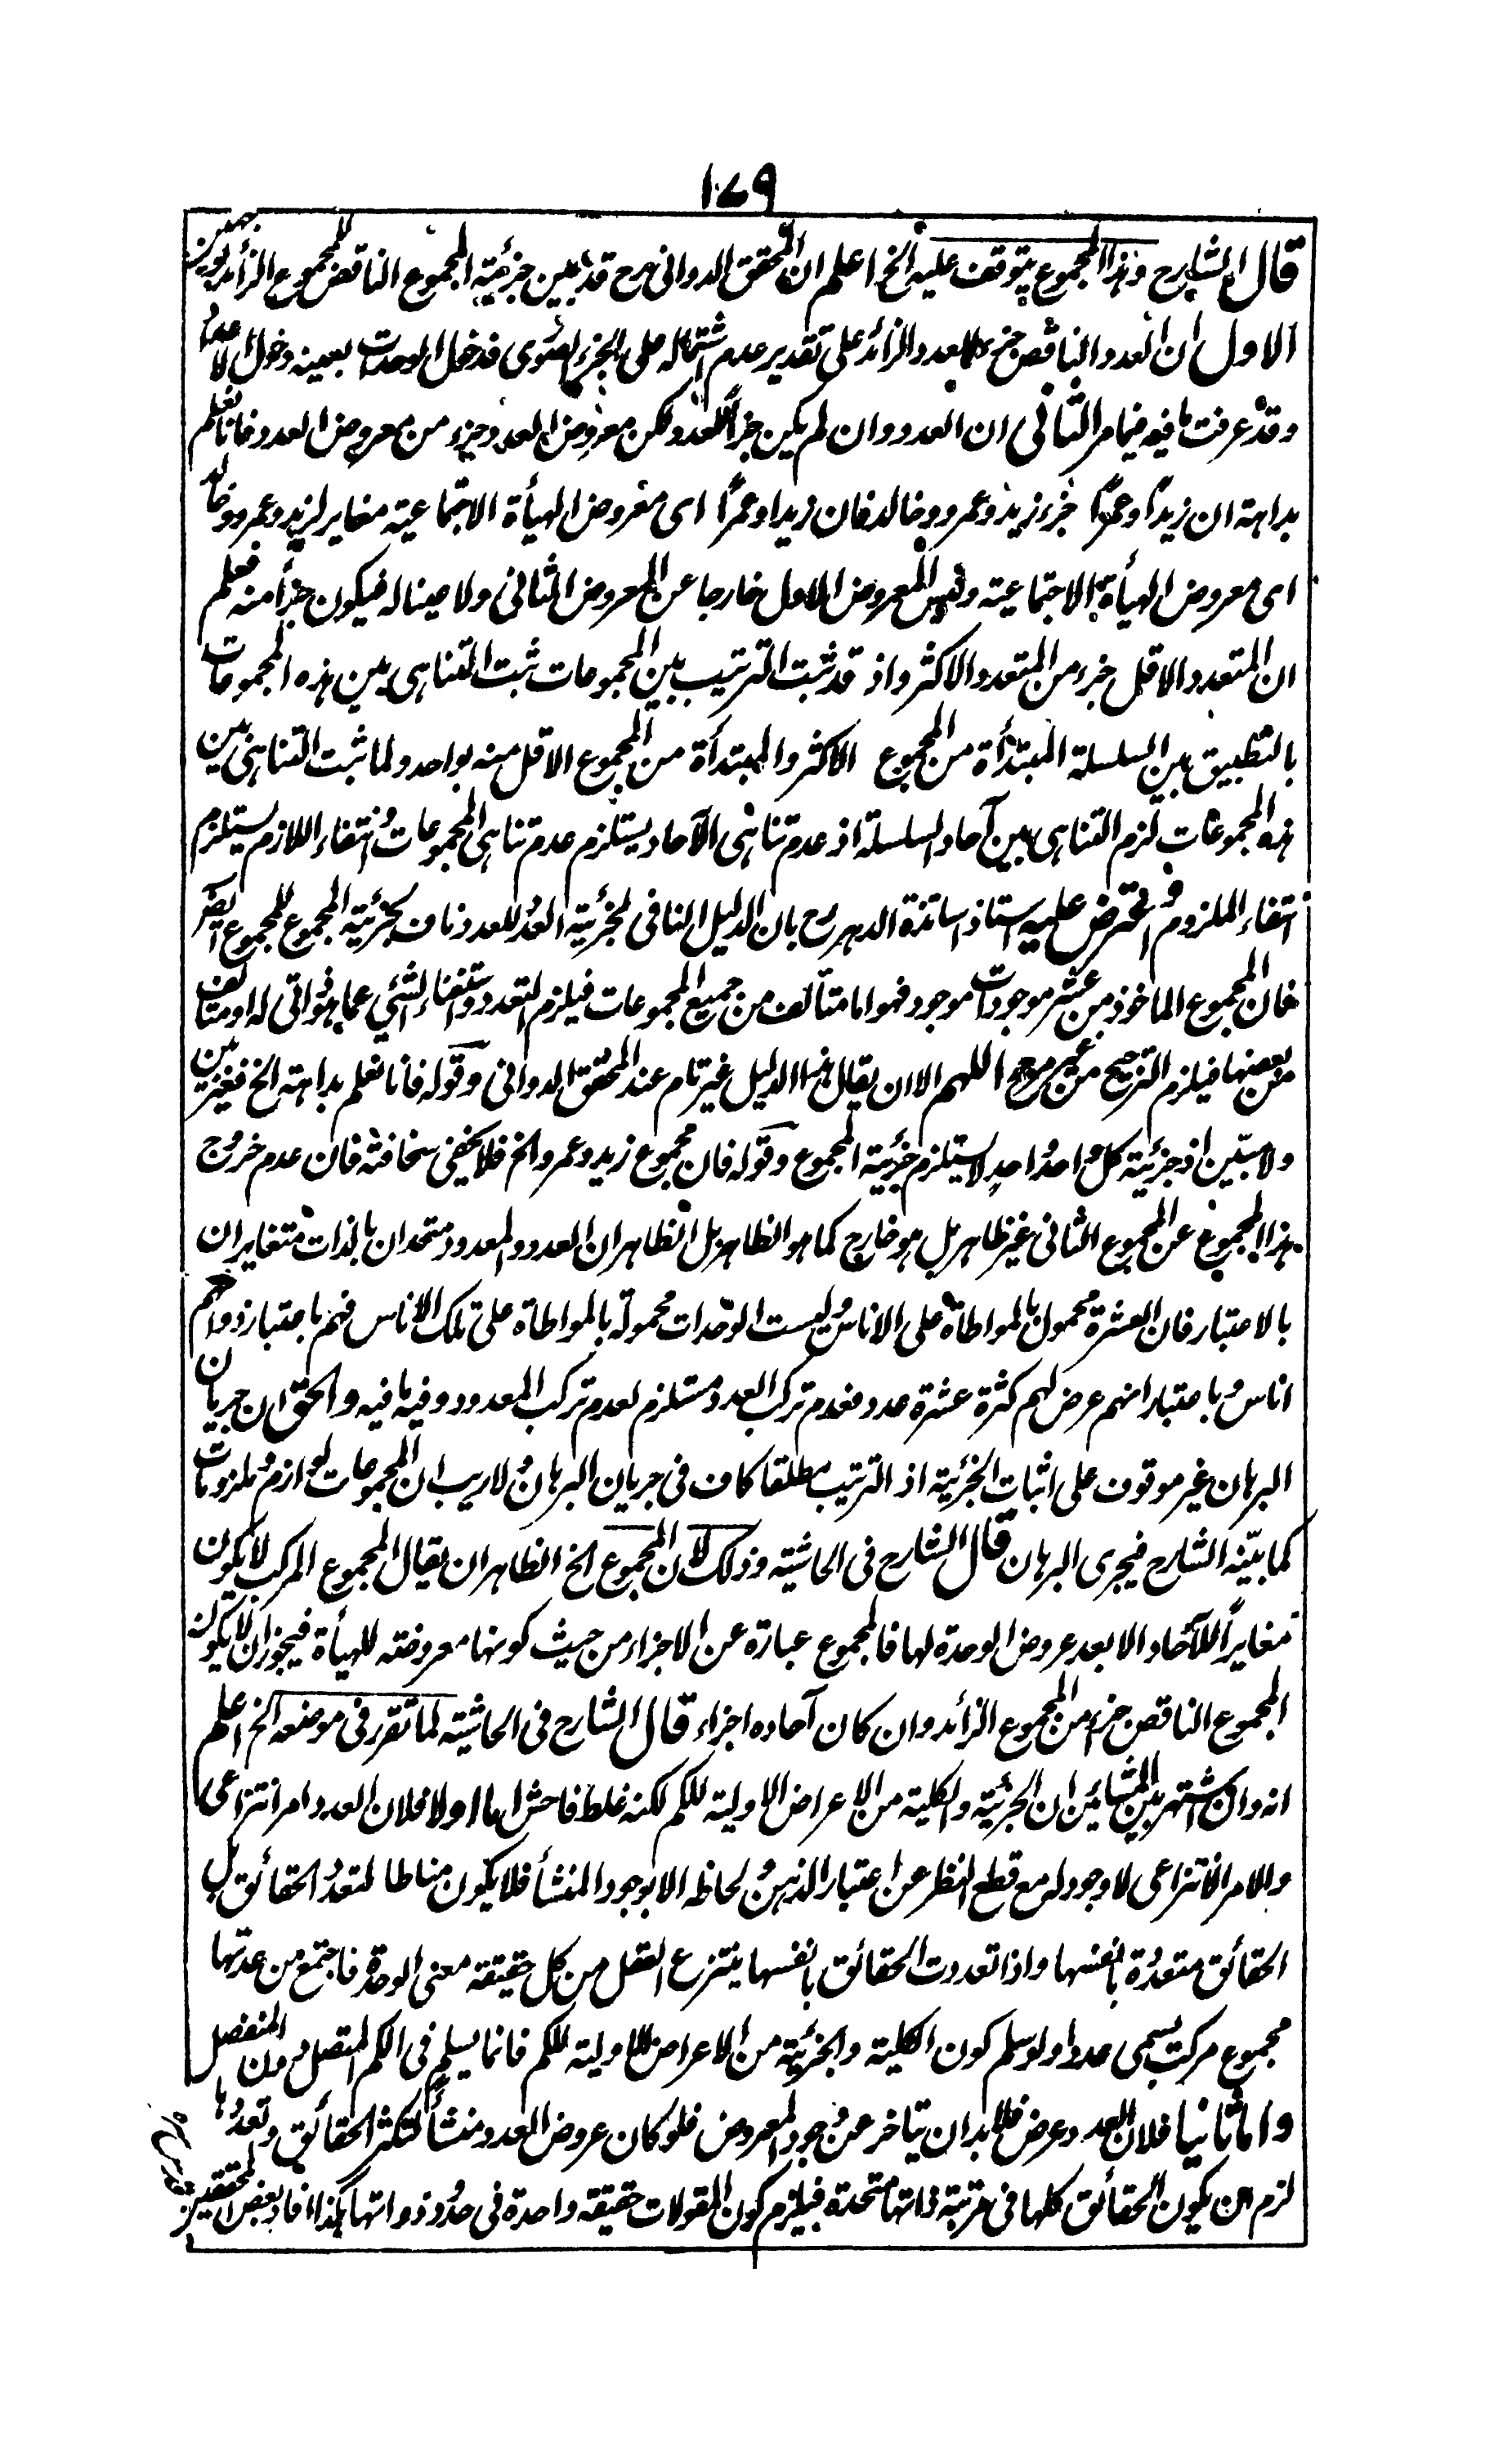 ١٧٩
قال الشارح وهذا المجموع يتوقف عليه الخ اعلم ان المحقق الدوانى رح قد بين جزئية المجموع الناقص للمجموع الزائد بوجهين
الاول ان العدد الناقص جزء للعدد الزائد على تقدير عدم اشتماله على الجزء الصورى فدخل الوحدات بعينه دخول الاعداد
وقد عرفت ما فيه فيما مر الثانى ان العدد وان لم يكن جزأ للعدد لكن معروض العدد جزء من معروض العدد فانا نعلم
بداهة ان زيدا وعمرًا جزء زيد وعمرو وخالد فان زيدا وعمرًا اى معروض الهيأة الاجتماعية مغاير لزيد وعمرو وخالد
اى معروض الهيأة الاجتماعية وليس المعروض الاول خارجا عن المعروض الثانى ولا عينا له فيكون جزأ منه فعلم
ان المتعدد الاقل جزء من المتعدد الاكثر واذ قد ثبت الترتيب بين المجموعات ثبت التناهى بين هذه المجموعات
بالتطبيق بين السلسلة المبتدأة من المجموع الاكثر والمبتدأة من المجموع الاقل منه بواحد ولما ثبت التناهى بين
هذه المجموعات لزم التناهى بين آحاد السلسلة اذ عدم تناهى الآحاد يستلزم عدم تناهى المجموعات وانتفاء اللازم يستلزم
انتفاء الملزوم واعترض عليه استاذ اساتذة الدهر رح بان الدليل النافى لجزئية العدد للعدد ناف لجزئية المجموع للمجموع ايضا
فان المجموع الماخوذ من عشر موجودات موجود فهو اما متألف من جميع المجموعات فيلزم التعدد واستغناء الشئ عما هو ذاتى له او متألف
من بعضها فيلزم الترجيح من غير مرجح اللهم الا ان يقال هذا الدليل غير تام عند المحقق الدوانى وقوله فانا نعلم بداهة الخ فغير بين
ولا مبين اذ جزئية كل واحد واحد لا يستلزم جزئية المجموع وقوله فان مجموع زيد وعمرو الخ فلا يخفى سخافته فان عدم خروج
هذا المجموع عن المجموع الثانى غير ظاهر بل هو خارج كما هو الظاهر بل الظاهر ان العدد والمعدود متحدان بالذات متغايران
بالاعتبار فان العشرة محمول بالمواطاة على الاناس وليست الوحدات محمولة بالمواطاة على تلك الاناس فهم باعتبار ذواتهم
اناس وباعتبار انهم عرض لهم كثرة عشرة عدد فعدم تركب العدد مستلزم لعدم تركب المعدود وفيه ما فيه والحق ان جريان
البرهان غير موقوف على اثبات الجزئية اذ الترتيب مطلقا كاف فى جريان البرهان ولا ريب ان المجموعات لوازم وملزومات
كما بينه الشارح فيجرى البرهان قال الشارح فى الحاشية وذلك لان المجموع الخ الظاهر ان يقال المجموع المركب لا يكون
مغايرًا للآحاد الا بعد عروض الوحدة لها فالمجموع عبارة عن الاجزاء من حيث كونها معروضة للهيأة فيجوز ان لا يكون
المجموع الناقص جزء من المجموع الزائد وان كان آحاده اجزاء قال الشارح فى الحاشية لما تقرر فى موضعه الخ اعلم
انه وان اشتهر بين المشائين ان الجزئية والكلية من الاعراض الاولية للكم لكنه غلط فاحش اما اولا فلان العدد امر انتزاعى
والامر الانتزاعى لا وجود له مع قطع النظر عن اعتبار الذهن ولحاظه الا بوجود المنشأ فلا يكون مناطا لتعدد الحقائق بل
الحقائق متعددة بانفسها واذا تعددت الحقائق بانفسها ينتزع العقل من كل حقيقة معنى الوحدة فاجتمع من عدتها
مجموع مركب يسمى عددا ولو سلم كون الكلية والجزئية من الاعراض الاولية للكم فانما يسلم فى الكم المتصل دون المنفصل
واما ثانيا فلان العدد عرض فلا بد ان يتاخر عن وجود المعروض فلو كان عروض العدد منشأ لتكثر الحقائق وتعددها
لزم ان يكون الحقائق كلها فى مرتبة ذاتها متحدة فيلزم كون المقولات حقيقة واحدة فى حدود ذواتها هكذا افاد بعض المحققين